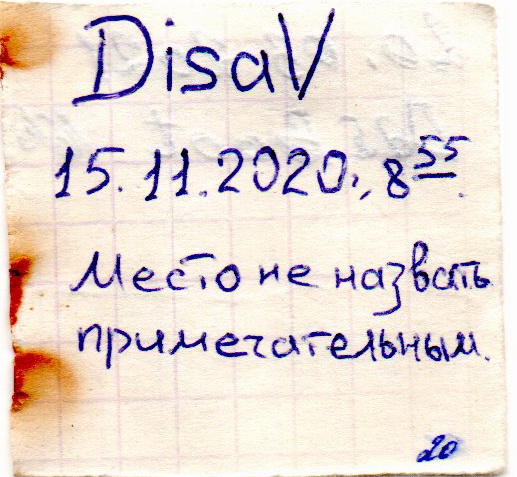 DisaV
15.11.2020г., 8⁵⁵.
Место не назвать
примечательным.
20